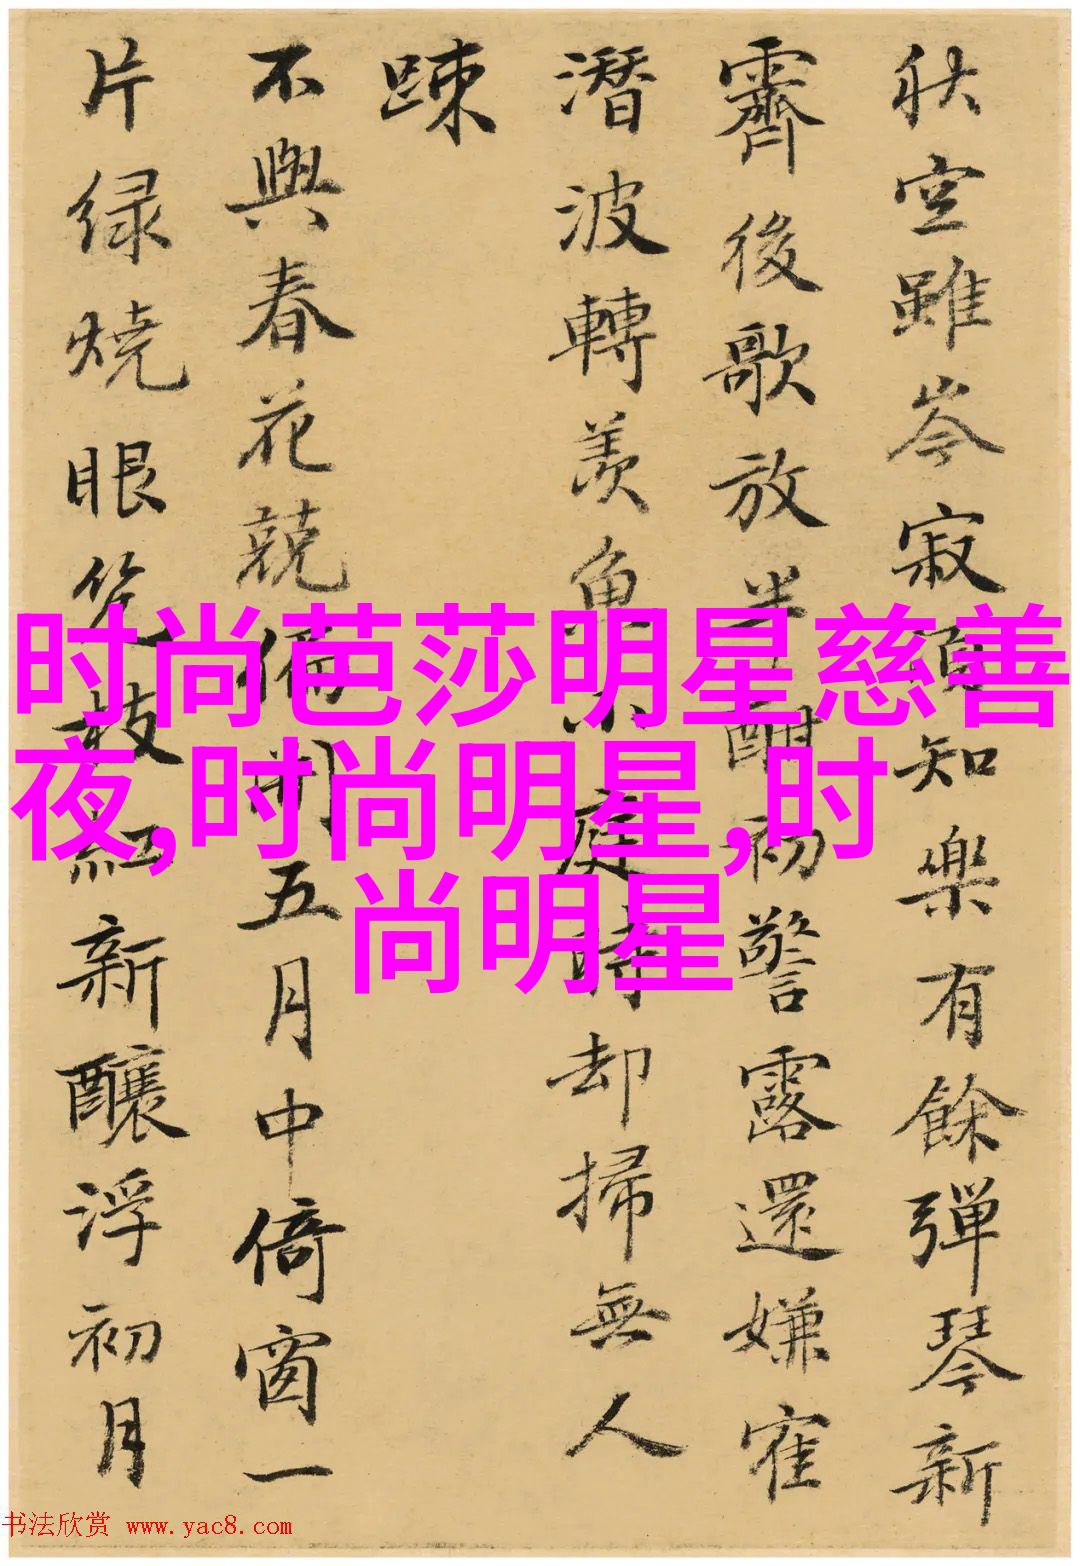 秋空雖岑寂須知樂有餘彈琴新
霽後歌放半酣初警露還嫌寉
潛波轉羨魚小庭時却掃無人
疎
不與春花競偏開五月中倚窗一
片绿燒眼枝紅新釀浮初月
时尚芭莎明星慈善
夜,时尚明星,时
尚明星
书法欣赏 www.yac8.com